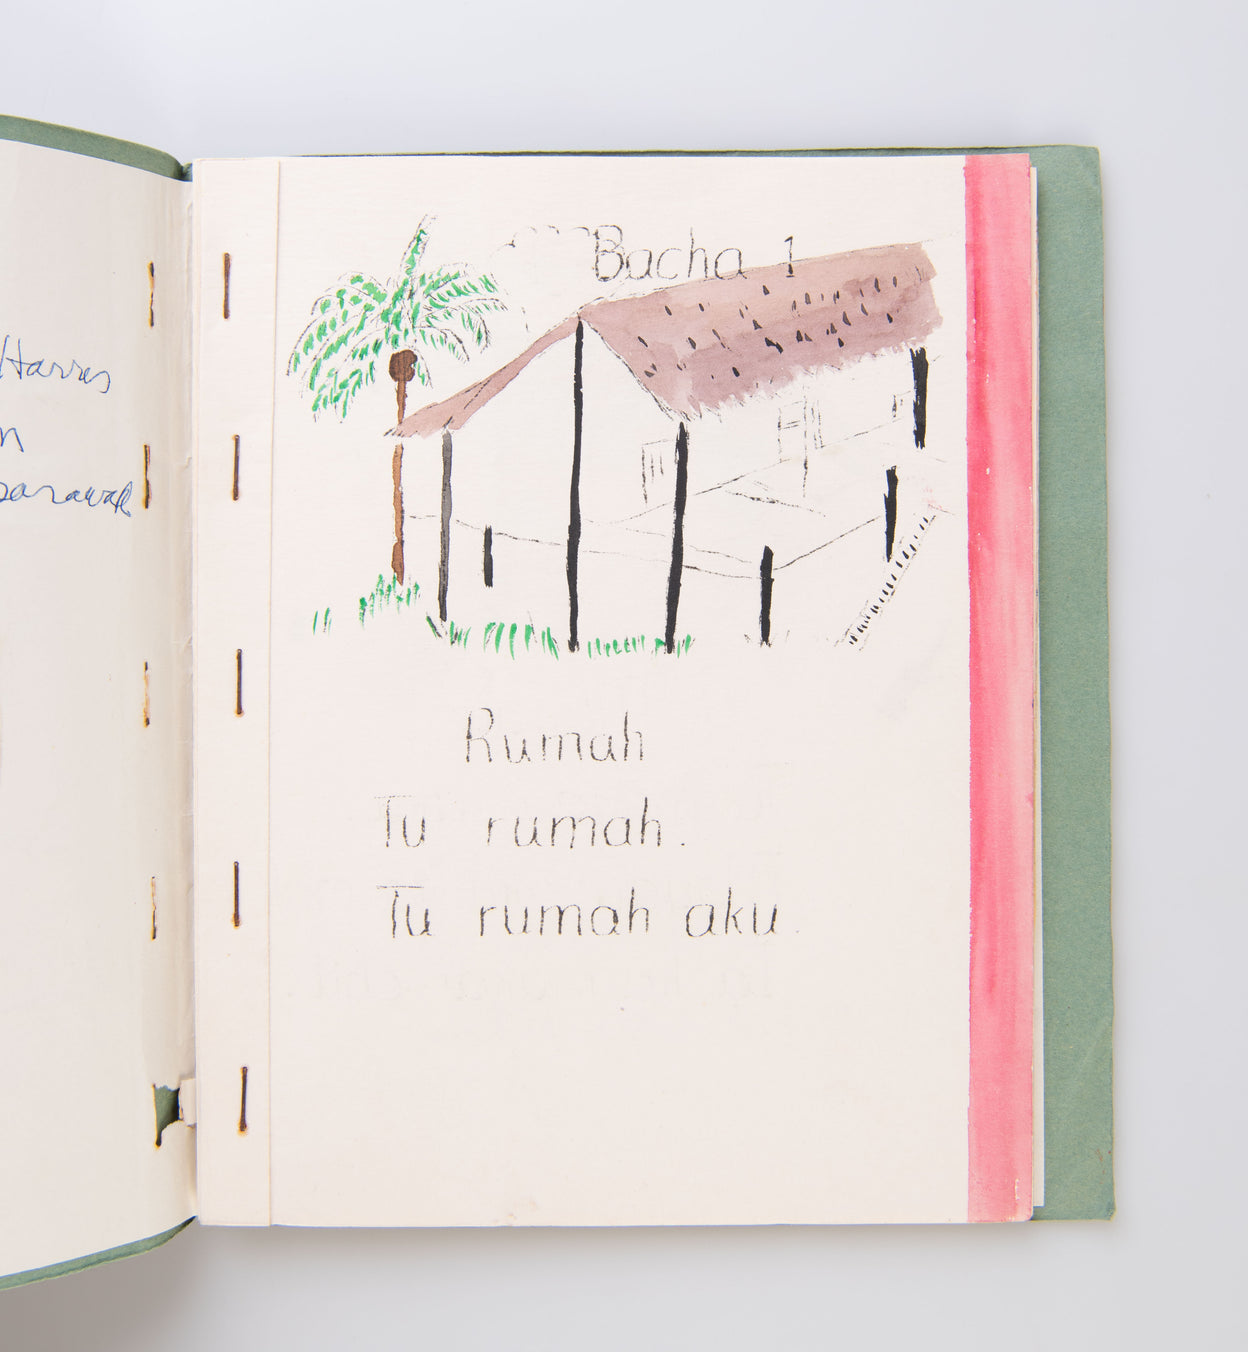 Harres
n
sarawak
Bacha 1
Rumah
Tu rumah.
Tu rumah aku.